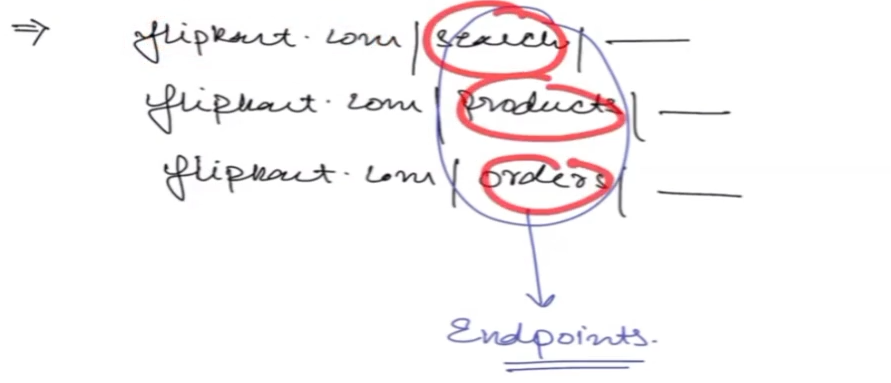 ⇒ flipkart.com/search/ ___
flipkart.com/products/ ___
flipkart.com/orders/ ___
Endpoints.